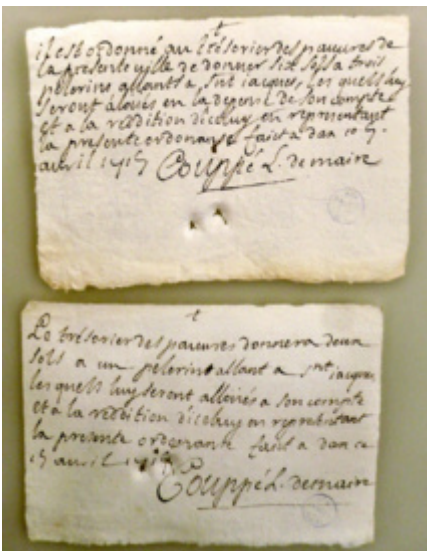 il est ordonné au trésorier des pauvres de
la presente ville de donner six sols a trois
pelerins allants a snt iacques, les quells luy
seront aloués en la depense de son compte
et a la reddition diceluy en representant
la presente ordonanse faict a dan ce 7
auril 1717 Couppé L. de maire
Le trésorier des pauvres donnera deux
sols a un pelerins allant a snt jacques
les quells luy seront alloués a son compte
et a la reddition diceluy en representant
la presente ordonnance faict a dan ce
avril
Couppé L. de maire